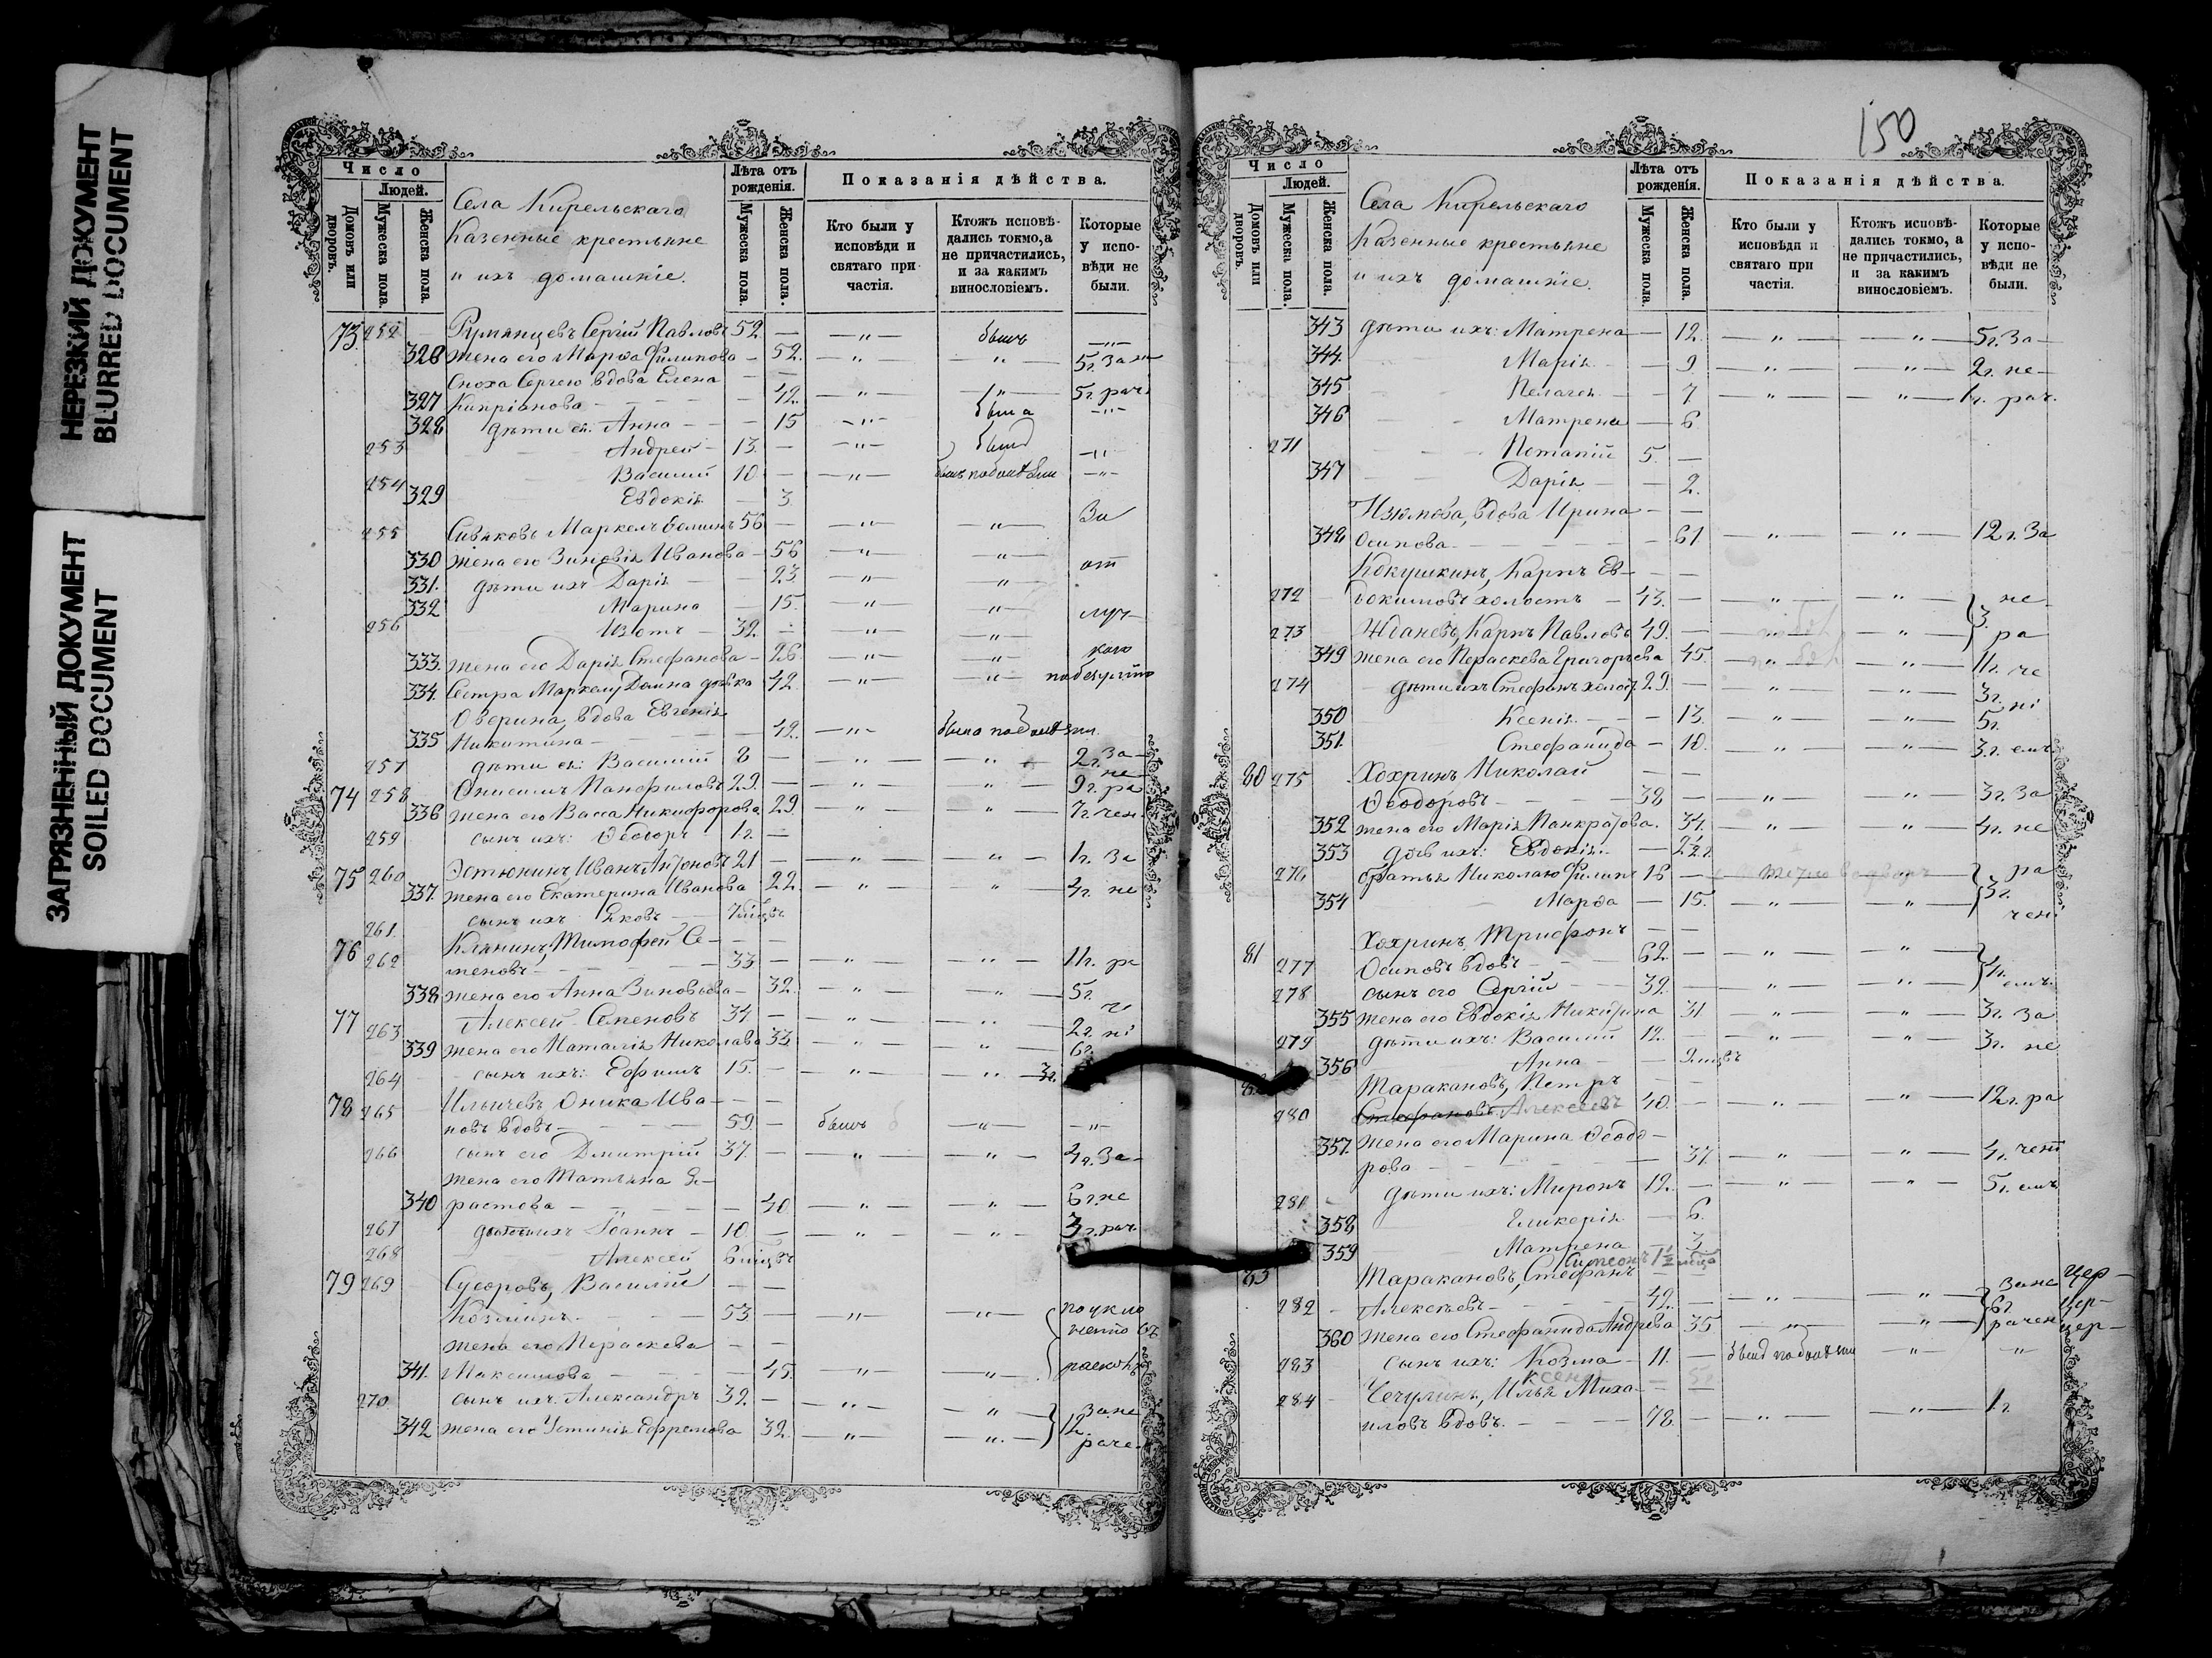 НЕРЕЗКИЙ ДОКУМЕНТ
BLURRED DOCUMENT
ЗАГРЯЗНЕННЫЙ ДОКУМЕНТ
SOILED DOCUMENT
Число
Людей.
Домовъ или дворовъ.
Мужеска пола.
Женска пола.
Села Кирельскаго
Казенные крестьяне
и ихъ домашніе.
Лѣта отъ рожденія.
Мужеска пола.
Женска пола.
Показанія дѣйства.
Кто были у исповѣди и святаго причастія.
Ктожъ исповѣдались токмо, а не причастились, и за какимъ винословіемъ.
Которые у исповѣди не были.
73. 252 Румянцевъ Сергій Павловъ 52. — — " — былъ — " —
326 жена его Марѳа Филипова — 52. — " — " 5 г. За
Сноха Сергею вдова Елена — —
327 Кипріанова — 42. — " — " — 5 г. рач.
328 дѣти ея: Анна — 15 — " — была — " —
253 Андрей — 13. — — " — былъ — " —
254 Василий 10 — — " — — " —
329 Евдокія — 3
255 Сивяковъ Маркелъ 56 — — " — " За
330 жена его Зиновія Иванова — 56 — " — " от
331. дѣти ихъ Дарія — 23 — " — "
332 Марина — 15. — " — "
256 Изотъ — 32. — — " — " —
333. жена его Дарія Стефанова — 26 — " — " —
334. Сестра Маркелу Домна дѣвка 42. — " — "
Оверина, вдова Евгенія
335 Никитина — 42. — " —
257 дѣти ея: Василий 8 — — " — " 2 г. За
74 258 Онисимъ Панфиловъ 29. — — " — " 9 г. ра
336 жена его Васса Никифорова. 29 — " — " 7 г. чен.
259 сынъ ихъ: Ѳеодоръ 1 г. —
75 260 Эстюнинъ, Иванъ Антоновъ 21 — — " — " — 1 г. За
337. жена его Екатерина Иванова 22. — " — " 4 г. не
261 сынъ ихъ Яковъ — 7 мѣцвъ
76 Клянинъ, Тимофей Се— — —
262 меновъ — 33 — — " — " — 11 г. ра
338 жена его Анна Зиновьева — 32. — " — " 5 г.
77 263 Алексей Семеновъ 34 — — " — " 2 г. ні
339 жена его Наталія Николаева 33 — " — " 6 г.
264 сынъ ихъ: Ефимъ 15. — — " — " — 3 г.
78 265 Ильичевъ, Оника Ива— — —
новъ вдовъ — 59. — былъ — " — — " —
266 сынъ его Дмитрій 37. — — " — " — 4 г. За—
жена его Татьяна Е—
340 растова — 40 — " — " 6 г. не
267 дѣти ихъ Іоаннъ — 10. — — " — " 3 г. рач.
268 Алексей 6 мѣцвъ
79 269 Суворовъ, Василій — —
Козминъ — 53 — — " — "
жена его Параскева — —
341. Максимова — 45. — " — "
270 сынъ ихъ Александръ 32. — — " — "
342 жена его Устинія Ефремова 32. — " — " 12.
150
Число
Людей.
Домовъ или дворовъ.
Мужеска пола.
Женска пола.
Села Кирельскаго
Казенные крестьяне
и ихъ домашніе.
Лѣта отъ рожденія.
Мужеска пола.
Женска пола.
Показанія дѣйства.
Кто были у исповѣди и святаго причастія.
Ктожъ исповѣдались токмо, а не причастились, и за какимъ винословіемъ.
Которые у исповѣди не были.
343 дѣти ихъ: Матрена — 12. — " — " — 5 г. За—
344. Марія — 9. — " — " — 2 г. не—
345 Пелагея — 7 — " — " — 1 г. рач.
346 Матрена — 6
271 Потапій 5. —
347 Дарія — 2.
Изюмова, вдова Ирина — —
348 Осипова — 61. — " — " — 12 г. За
Кокушкинъ, Карпъ Ев— — —
272 докимовъ холостъ — 43. — — " — " — не
273 Ждановъ, Карпъ Павловъ 49. — — " — " 3. ра
349 жена его Параскева Григорьева 45. — " — " 11 г. че
274 дѣти ихъ: Стефанъ холос. 29. — — " — " 3 г. ні
350 Ксенія — 13. — " — " 5 г.
351. Стефанида — 10. — " — " 3 г. емъ
80 275 Хохринъ Николай — —
Ѳеодоровъ — 38 — — " — " — 3 г. За
352 жена его Марія Панкратова. 34. — " — " 4 г. не
353 дочь ихъ: Евдокія — 2½ г.
276 братья Николаю Филипъ 18 — ра
354 Марѳа — 15. — " — " 3 г. чені
Хохринъ, Трифонъ — —
81 277 Осиповъ вдовъ — 62. — — " — "
278 сынъ его Сергій — 32. — — " — " 4 г. емъ
355 жена его Евдокія Никитина 31 — " — " 3 г. За
279 дѣти ихъ: Василий 12. — — " — " 3 г. не
356 Анна — 9 мѣцвъ
Таракановъ, Петръ — —
280 Стефановъ Алексеевъ 40. — — " — " — 12 г. ра
357. жена его Марина Ѳеодо—
рова — 37. — " — " 4 г. чені
281 дѣти ихъ: Миронъ 12. — — " — " — 5 г. емъ
358 Гликерія — 6.
359 Матрена — 3
Симеонъ 1½ мѣца
83 Таракановъ, Стефанъ — —
282 Алексѣевъ — 42. — — " — " 6 г.
360 жена его Стефанида Андреева 35 — " — "
283 сынъ ихъ: Козма — 11. — " "
Ксенія — 5.
284 Чечулинъ, Илья Миха— — —
иловъ вдовъ. — 78. — — " — " — 1 г.